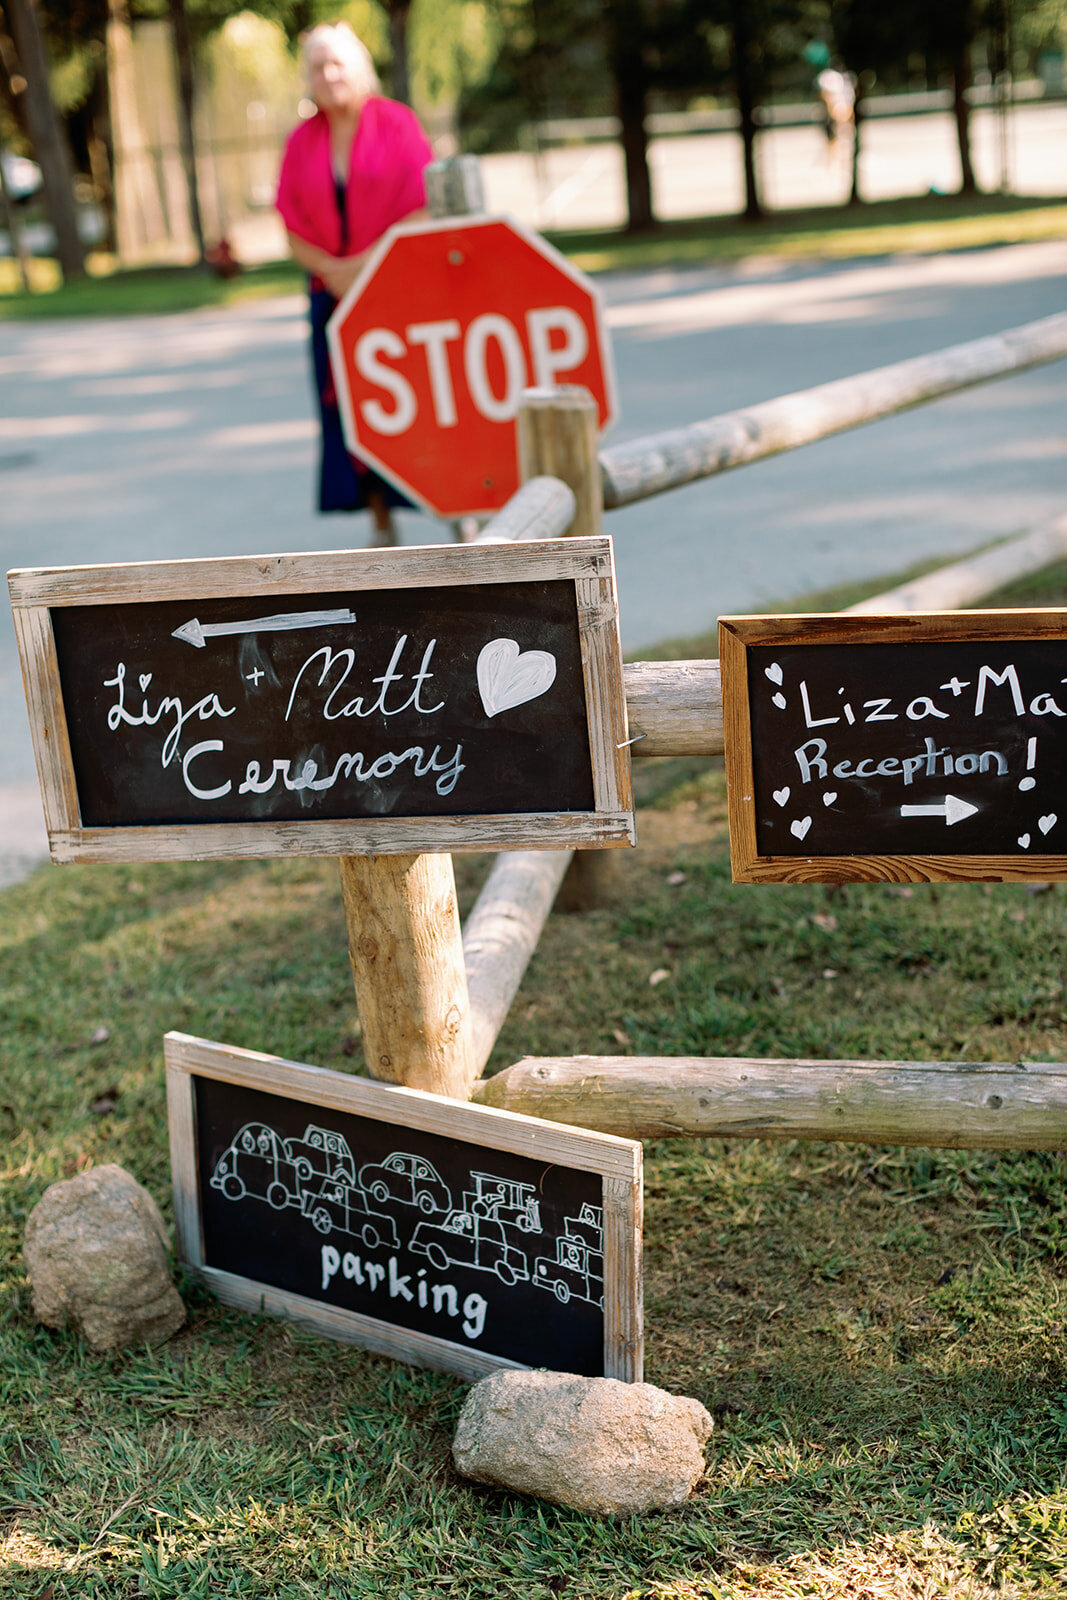 STOP
Liza + Matt
Ceremony
Liza + Ma
Reception!
parking